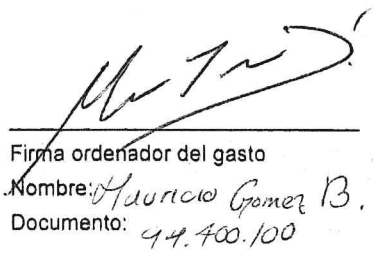 Firma ordenador del gasto
Nombre: Mauricio Gomez B.
Documento: 94.400.100